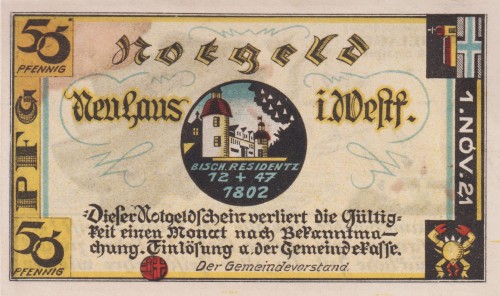 50
PFENNIG
Notgeld
Neuhaus i. Westf.
PFG
1. NOV. 21
BISCH. RESIDENTZ
12 + 47
1802
Dieser Notgeldschein verliert die Gültig-
keit einen Monat nach Bekanntma-
chung. Einlösung a. der Gemeindekasse.
Der Gemeindevorstand.
50
PFENNIG